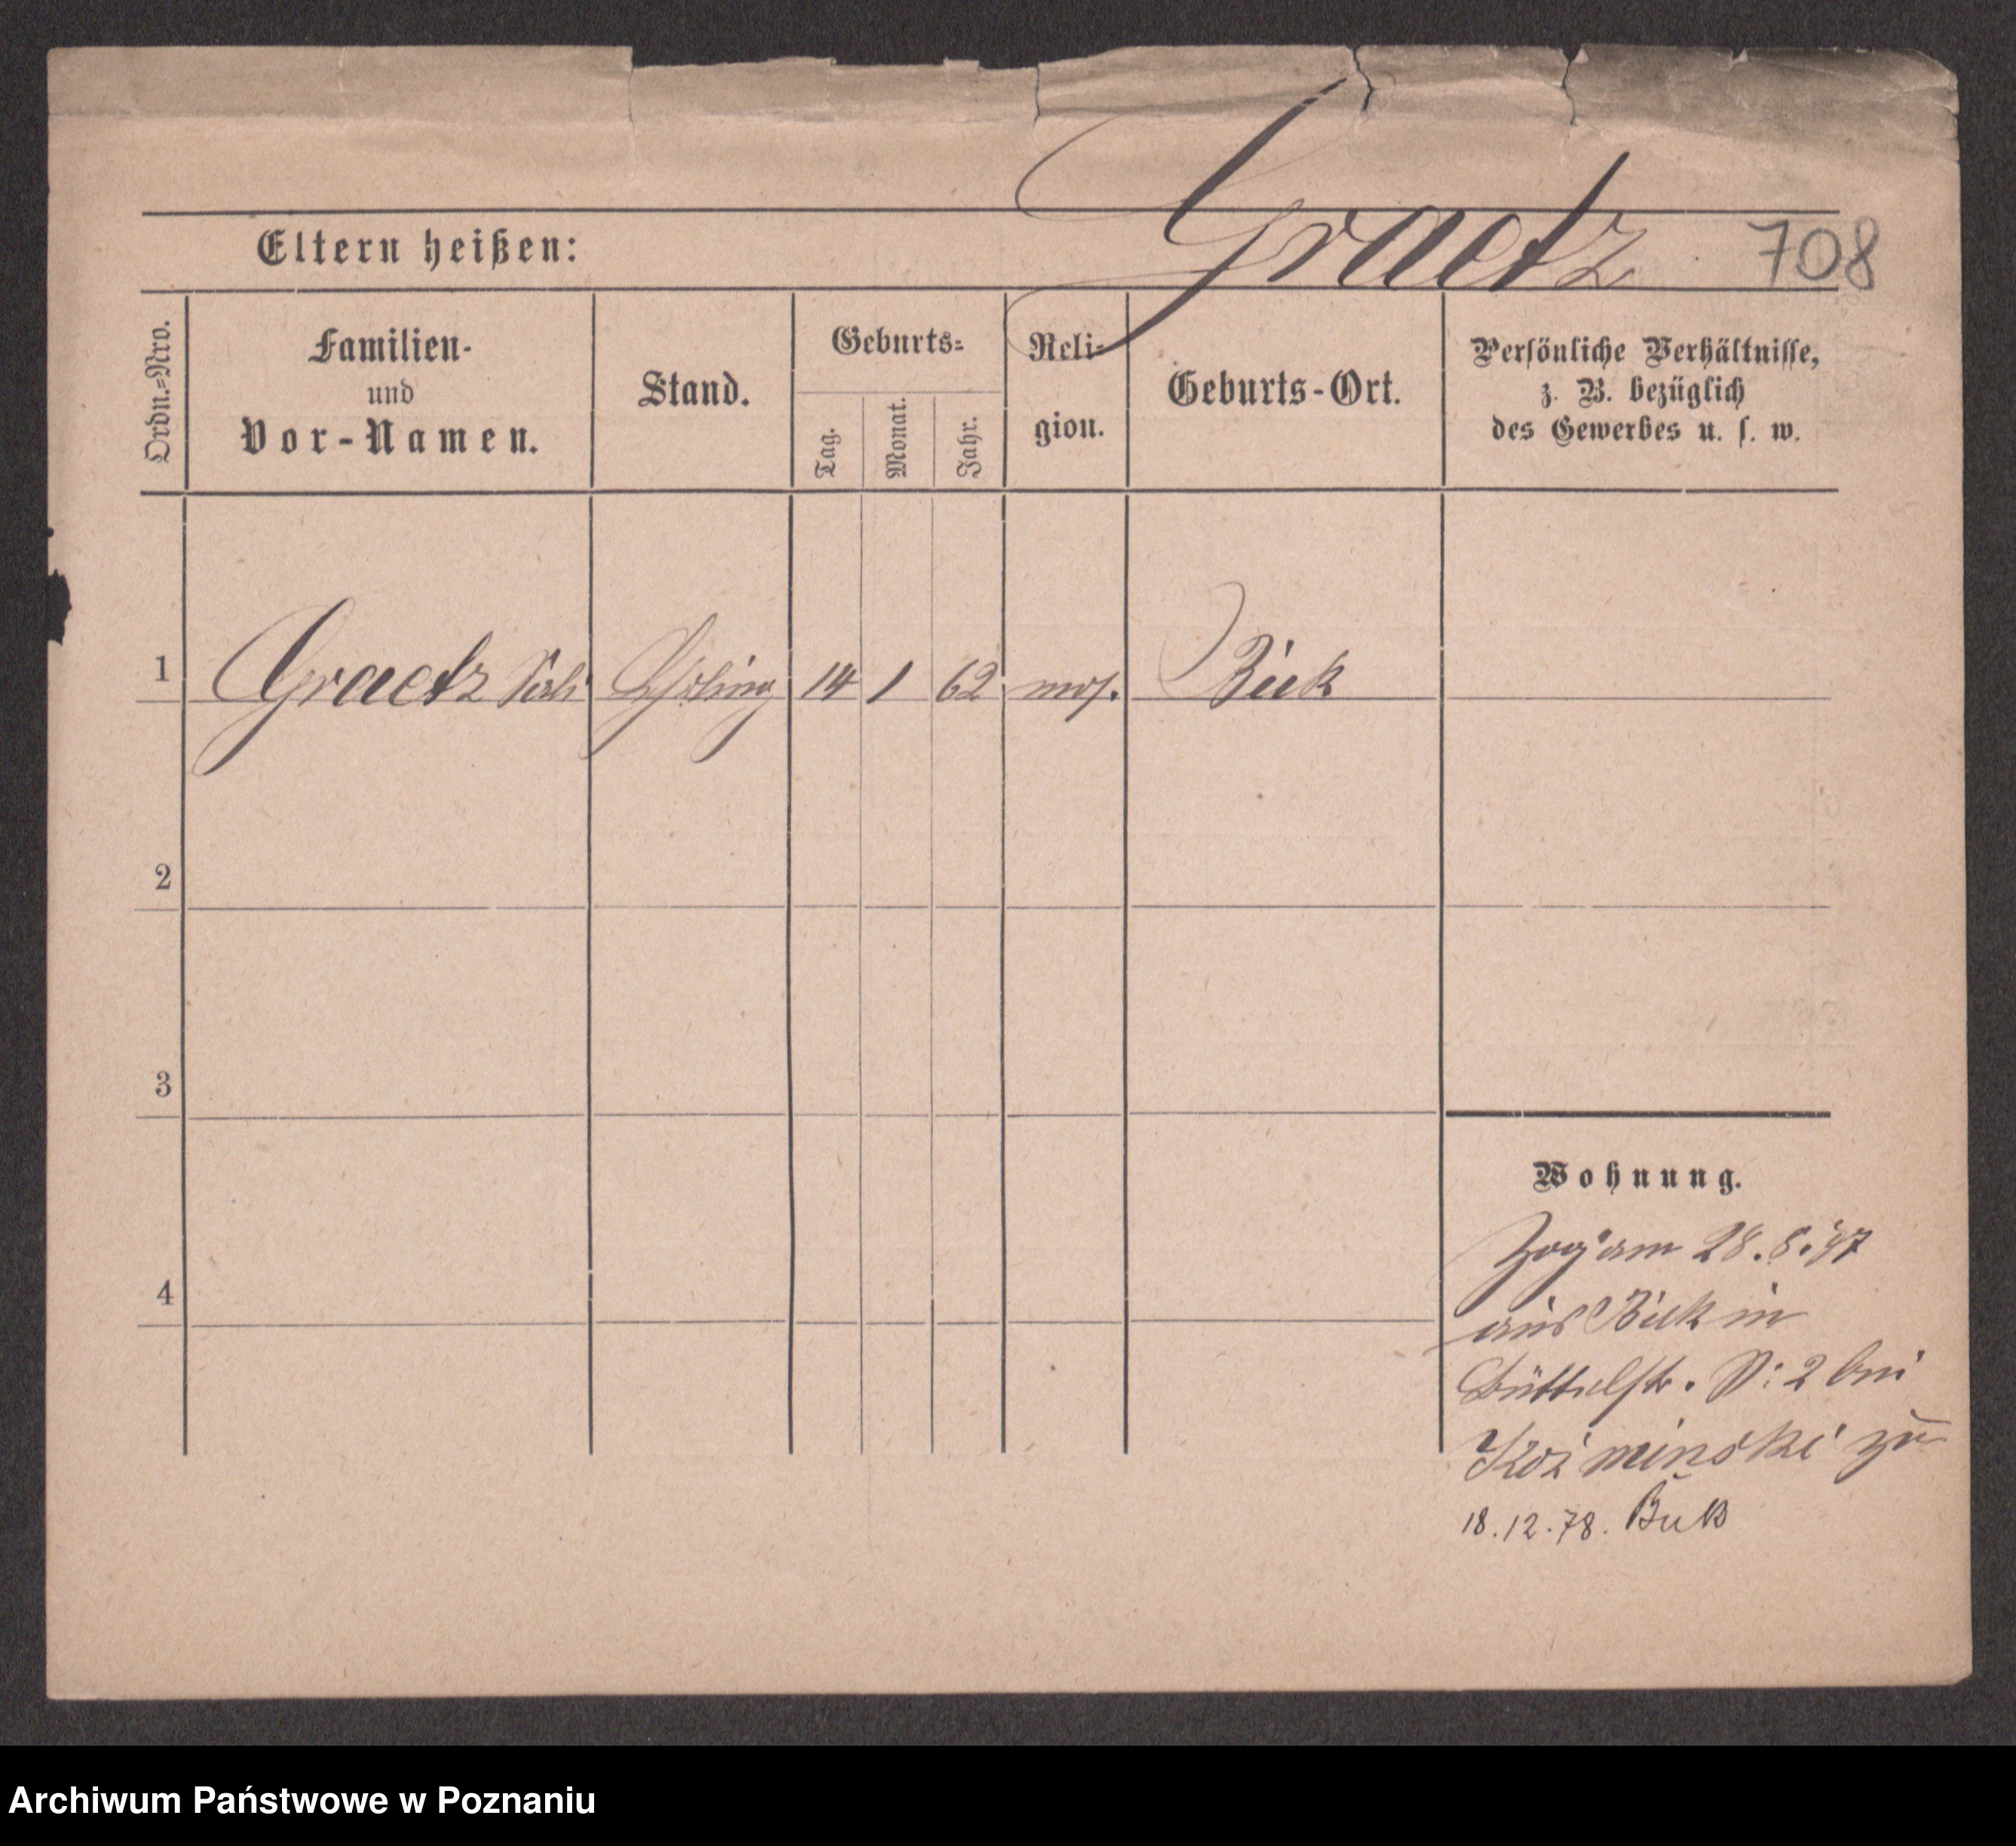 Graetz
708
Eltern heißen:
Ordn.=Nro.
Familien-
und
Vor-Namen.
Stand.
Geburts=
Tag.
Monat.
Jahr.
Reli-
gion.
Geburts-Ort.
Persönliche Verhältnisse,
z. B. bezüglich
des Gewerbes u. s. w.
1 Graetz 14 1 62 mos. Buk
2
3
4
Wohnung.
Zog am 28. 8.
aus Buk in
Büttelstr. N: 2 bei
Kozminski zu
18.12.78. Buk
Archiwum Państwowe w Poznaniu